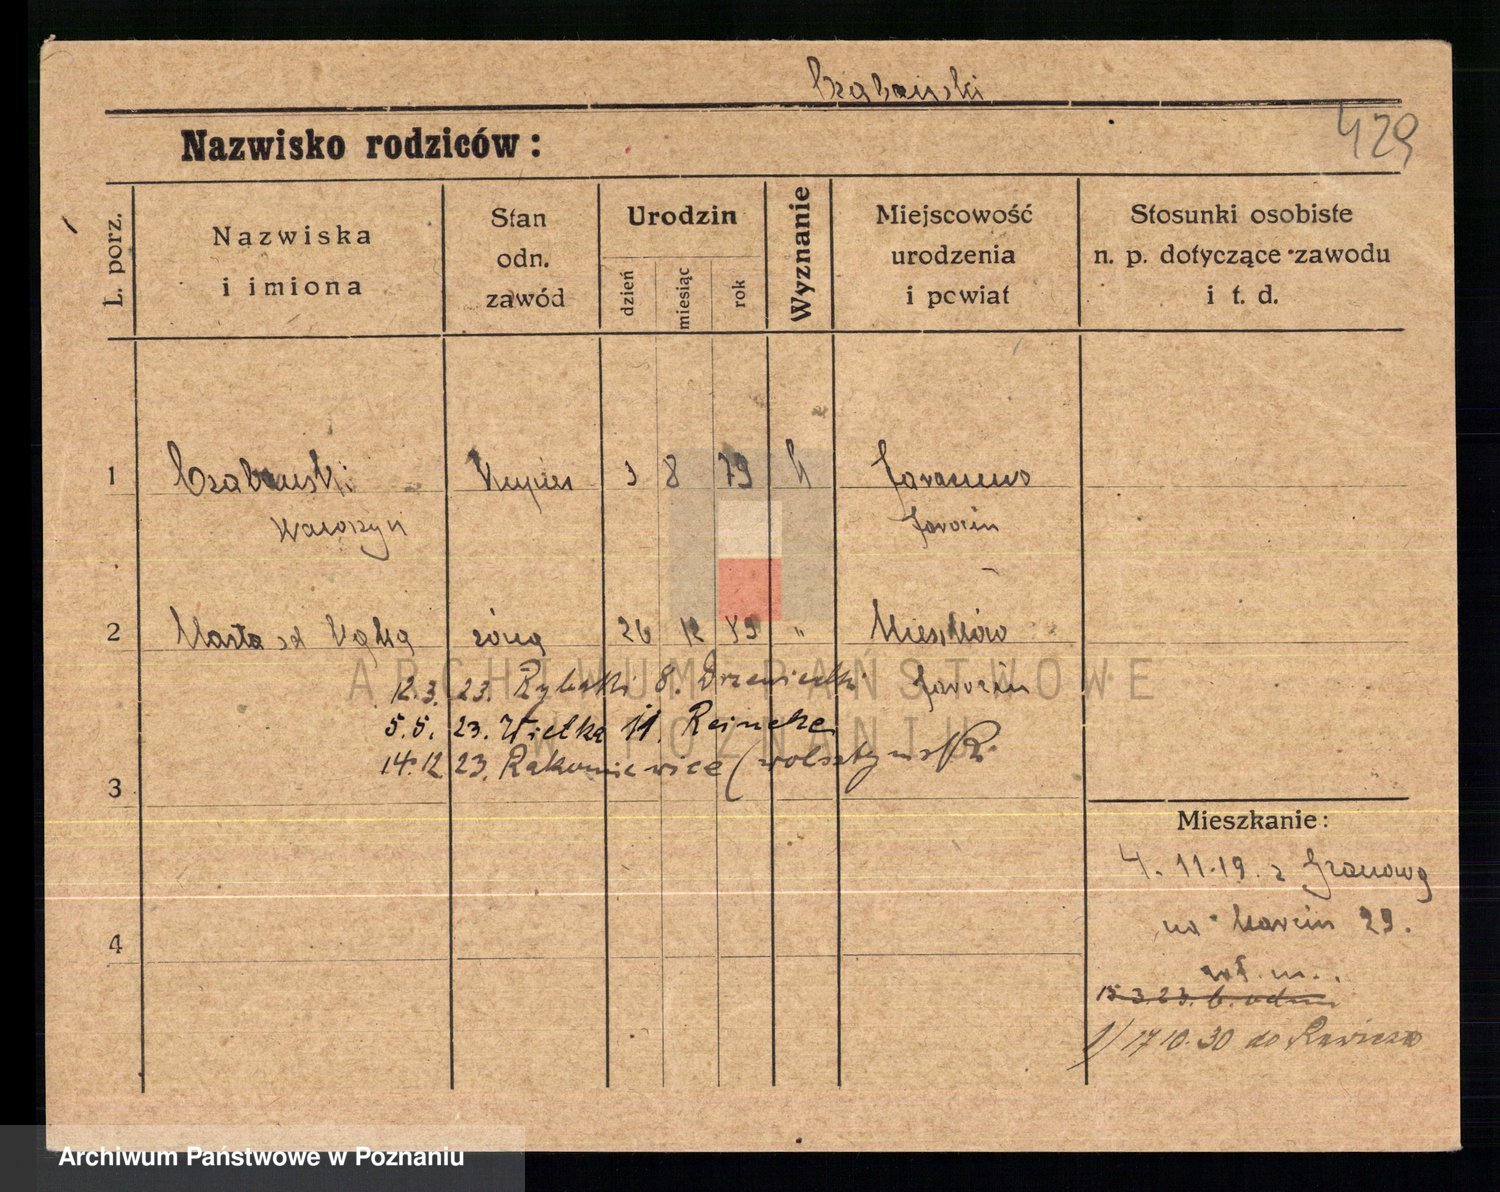 Czabański
429
Nazwisko rodziców:
L. porz.
Nazwiska
i imiona
Stan
odn.
zawód
Urodzin
dzień
miesiąc
rok
Wyznanie
Miejscowość
urodzenia
i powiat
Stosunki osobiste
n. p. dotyczące zawodu
i t. d.
1
Czabański Kupiec 3 8 79 k
Wawrzyn Jarocin
2
Marta żona 26 12 89 " Mieszków
Jarocin
12.3.23. Rybaki 8. Drzewiecki
5.5.23. Wielka 11. Reineke
14.12.23. Rakoniewice (wolsztyński
3
Mieszkanie:
4.11.19. z Granowa
na Marcin 29.
4
15.3.23.
1) 17 10.30 do Rawicza
ARCHIWUM PAŃSTWOWE
W POZNANIU
Archiwum Państwowe w Poznaniu